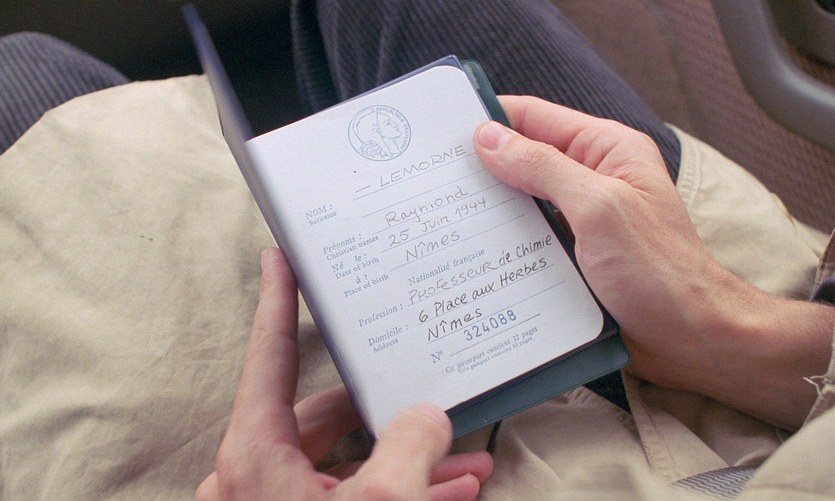 — LEMORNE
NOM :
Surname
Raymond
Prénoms :
Christian names
25 Juin 1944
Né le :
Date of birth
Nîmes
à :
Place of birth
Nationalité française
Professeur de Chimie
Profession :
6 Place aux Herbes
Domicile :
Address
Nîmes
N° 324088
Ce passeport contient 32 pages
This passport contains 32 pages